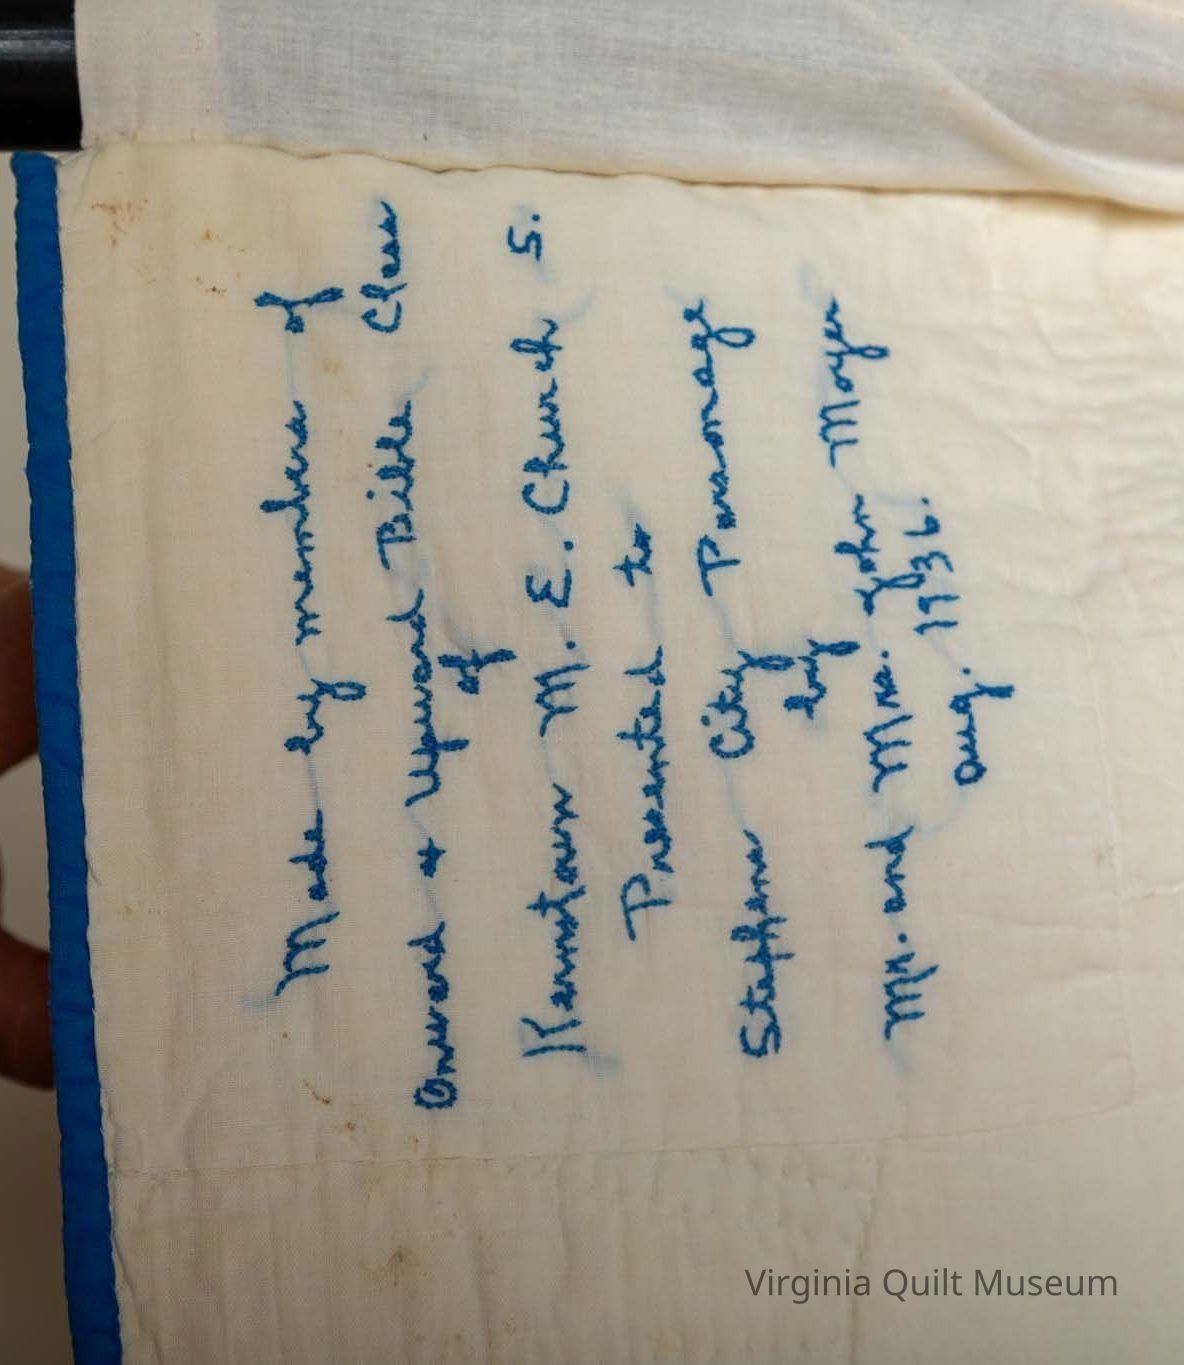 Made by members of
Onward & Upward Bible Class
of
Kernstown M. E. Church S.
Presented to
Stephens City Parsonage
by
Mr. and Mrs. John Moyer
Aug. 1936.
Virginia Quilt Museum